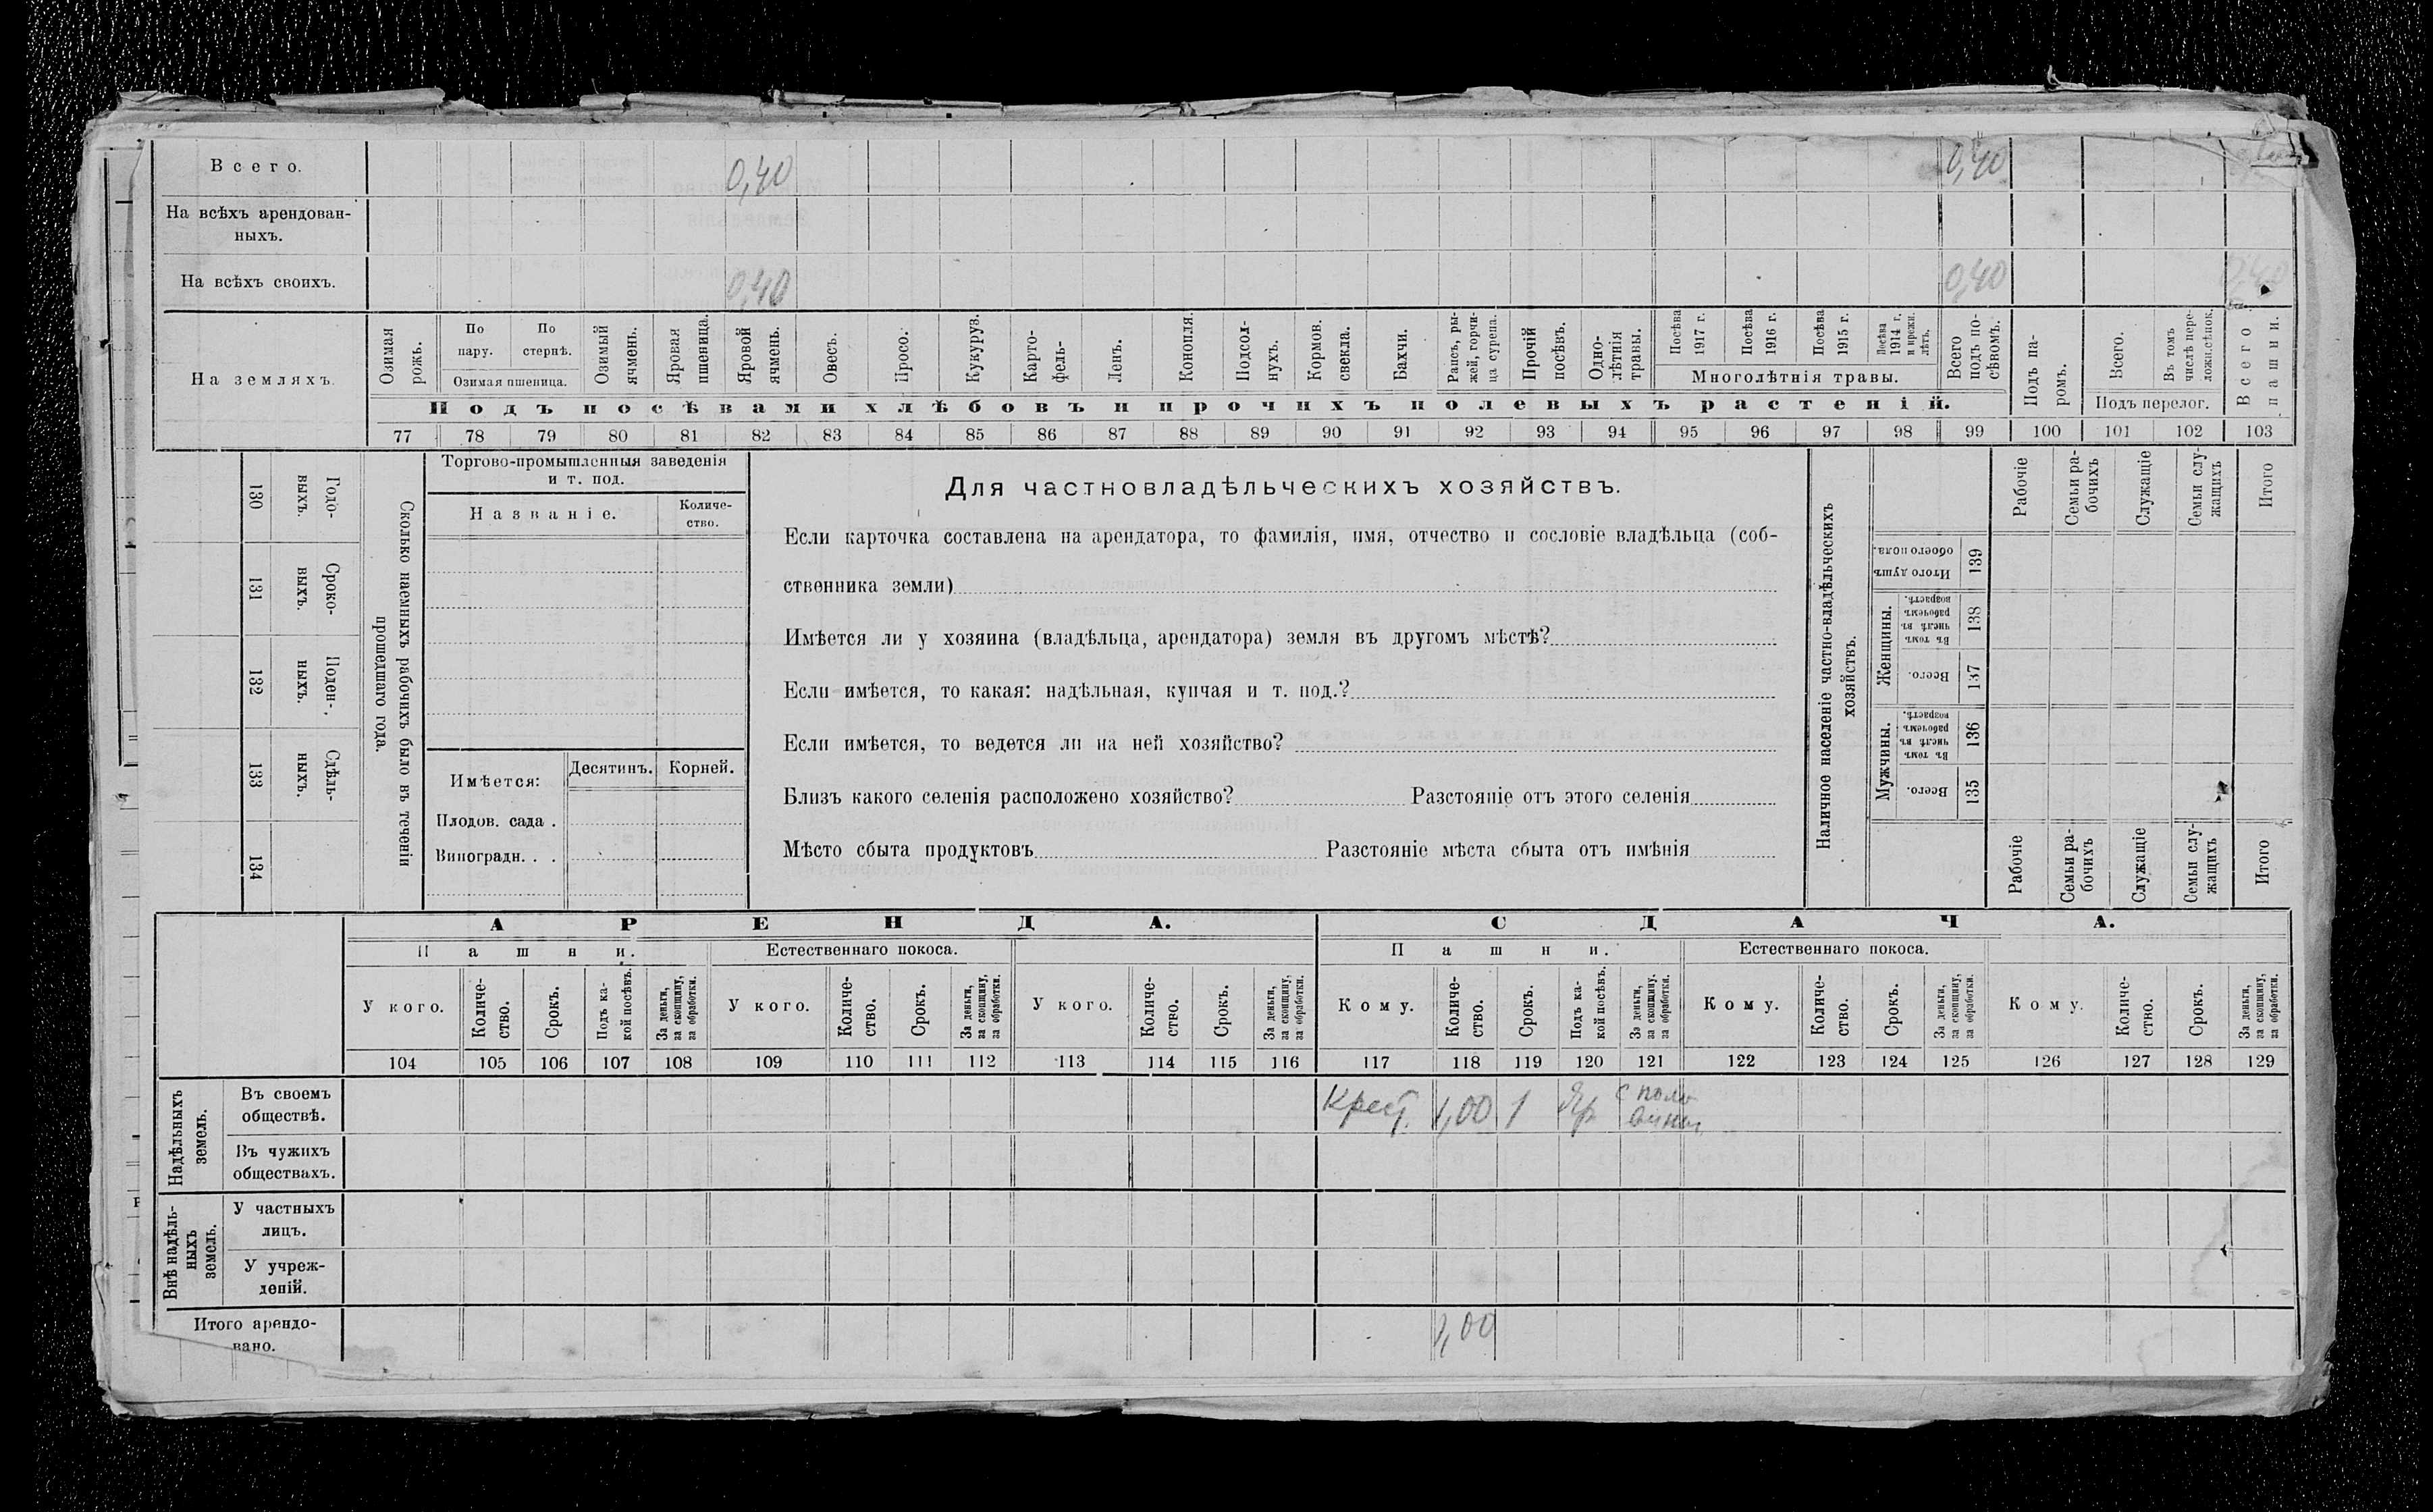 Всего. 0,40 0,40
На всѣхъ арендован-
ныхъ.
На всѣхъ своихъ. 0,40 0,40 0,40
На земляхъ.
Озимая рожь.
По пару.
По стернѣ.
Озимая пшеница.
Озимый ячмень.
Яровая пшеница.
Яровой ячмень.
Овесъ.
Просо.
Кукуруз.
Карто-
фель-
Ленъ.
Конопля.
Подсол-
нухъ.
Кормов.
свекла.
Бахчи.
Рапсъ, ры-
жей, горчи-
ца сурепа.
Прочій
посѣвъ.
Одно-
лѣтнія
травы.
Посѣва
1917 г.
Посѣва
1916 г.
Посѣва
1915 г.
Посѣва
1914 г.
и прежн.
лѣтъ.
Многолѣтнія травы.
Всего
подъ по-
сѣвомъ.
Подъ па-
ромъ.
Всего.
Въ томъ
числѣ пере-
ложн.сѣнок.
Подъ перелог.
Всего
пашни.
Подъ посѣвами хлѣбовъ и прочихъ полевыхъ растеній.
77 78 79 80 81 82 83 84 85 86 87 88 89 90 91 92 93 94 95 96 97 98 99 100 101 102 103
Сколько наемныхъ рабочихъ было въ теченіи
прошедшаго года.
Годо-
выхъ.
130
Сроко-
выхъ.
131
Поден-
ныхъ.
132
Сдѣль-
ныхъ.
133
134
Торгово-промышленныя заведенія
и т. под.
Названіе.
Количе-
ство.
Имѣется:
Десятинъ.
Корней.
Плодов. сада .
Виноградн. . .
Для частновладѣльческихъ хозяйствъ.
Если карточка составлена на арендатора, то фамилія, имя, отчество и сословіе владѣльца (соб-
ственника земли)
Имѣется ли у хозяина (владѣльца, арендатора) земля въ другомъ мѣстѣ?
Если имѣется, то какая: надѣльная, купчая и т. под.?
Если имѣется, то ведется ли на ней хозяйство?
Близъ какого селенія расположено хозяйство? Разстояніе отъ этого селенія
Мѣсто сбыта продуктовъ Разстояніе мѣста сбыта отъ имѣнія
Наличное населеніе частно-владѣльческихъ
хозяйствъ.
Итого душъ
обоего пола.
139
Женщины.
Въ томъ
числѣ въ
рабочемъ
возрастѣ.
138
Всего.
137
Мужчины.
Въ томъ
числѣ въ
рабочемъ
возрастѣ.
136
Всего.
135
Рабочіе
Семьи ра-
бочихъ
Служащіе
Семьи слу-
жащихъ
Итого
Рабочіе
Семьи ра-
бочихъ
Служащіе
Семьи слу-
жащихъ
Итого
АРЕНДА. СДАЧА.
Пашни. Естественнаго покоса. Пашни. Естественнаго покоса.
У кого.
Количе-
ство.
Срокъ.
Подъ ка-
кой посѣвъ.
За деньги,
за скопщину,
за обработки.
У кого.
Количе-
ство.
Срокъ.
За деньги,
за скопщину,
за обработки.
У кого.
Количе-
ство.
Срокъ.
За деньги,
за скопщину,
за обработки.
Кому.
Количе-
ство.
Срокъ.
Подъ ка-
кой посѣвъ.
За деньги,
за скопщину,
за обработки.
Кому.
Количе-
ство.
Срокъ.
За деньги,
за скопщину,
за обработки.
Кому.
Количе-
ство.
Срокъ.
За деньги,
за скопщину,
за обработки.
104 105 106 107 108 109 110 111 112 113 114 115 116 117 118 119 120 121 122 123 124 125 126 127 128 129
Надѣльныхъ
земель.
Въ своемъ
обществѣ.
Крест. 1,00 1 Яр с поло
вины
Въ чужихъ
обществахъ.
Внѣ надѣль-
ныхъ
земель.
У частныхъ
лицъ.
У учреж-
деній.
Итого арендо-
вано.
1,00